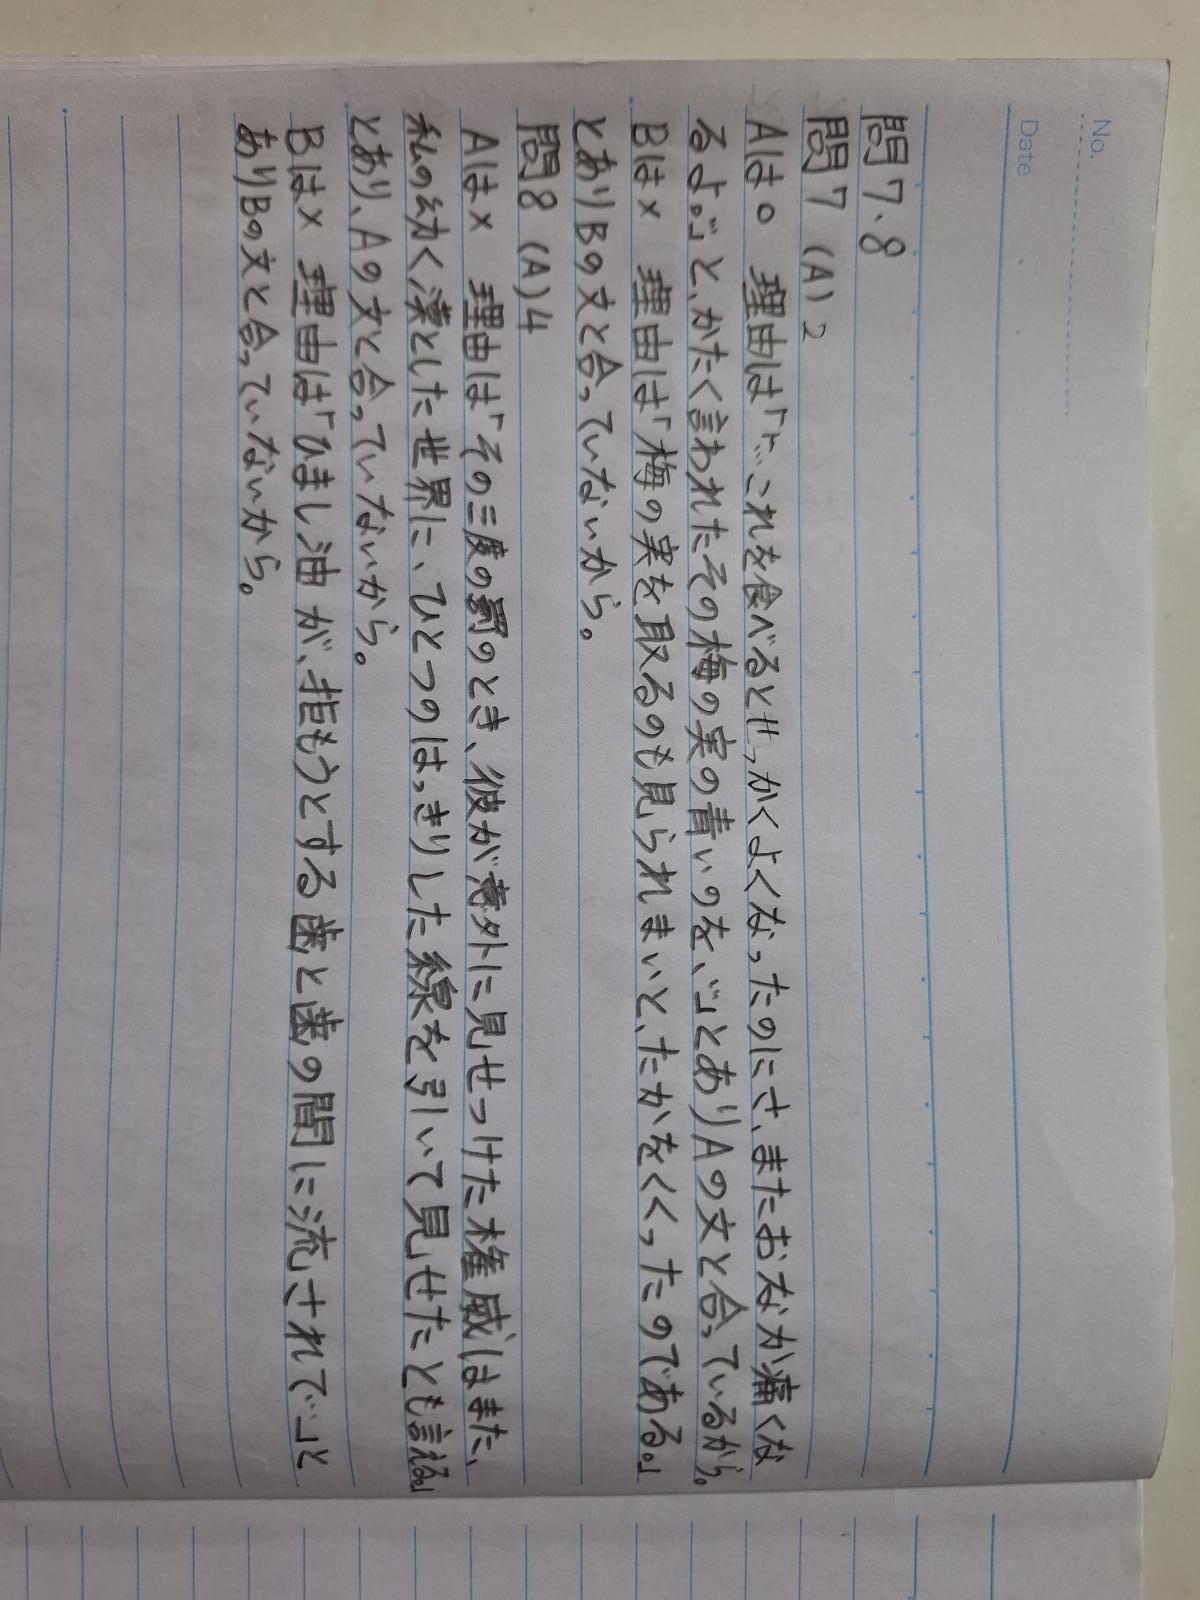 No.
Date
問7・8
問7 (A) 2
Aは○ 理由は「「…これを食べるとせっかくよくなったのにさ、またおなか痛くな
るよ。」と、かたく言われたその梅の実の青いのを、…」とありAの文と合っているから。
Bは× 理由は「梅の実を取るのも見られまいと、たかをくくったのである。」
とありBの文と合っていないから。
問8 (A) 4
Aは× 理由は「その三度の罰のとき、彼が意外に見せつけた権威はまた、
私の幼く漠とした世界に、ひとつのはっきりした線を引いて見せたとも言える。」
とあり、Aの文と合っていないから。
Bは× 理由は「ひまし油が、拒もうとする歯と歯の間に流されて…」と
ありBの文と合っていないから。